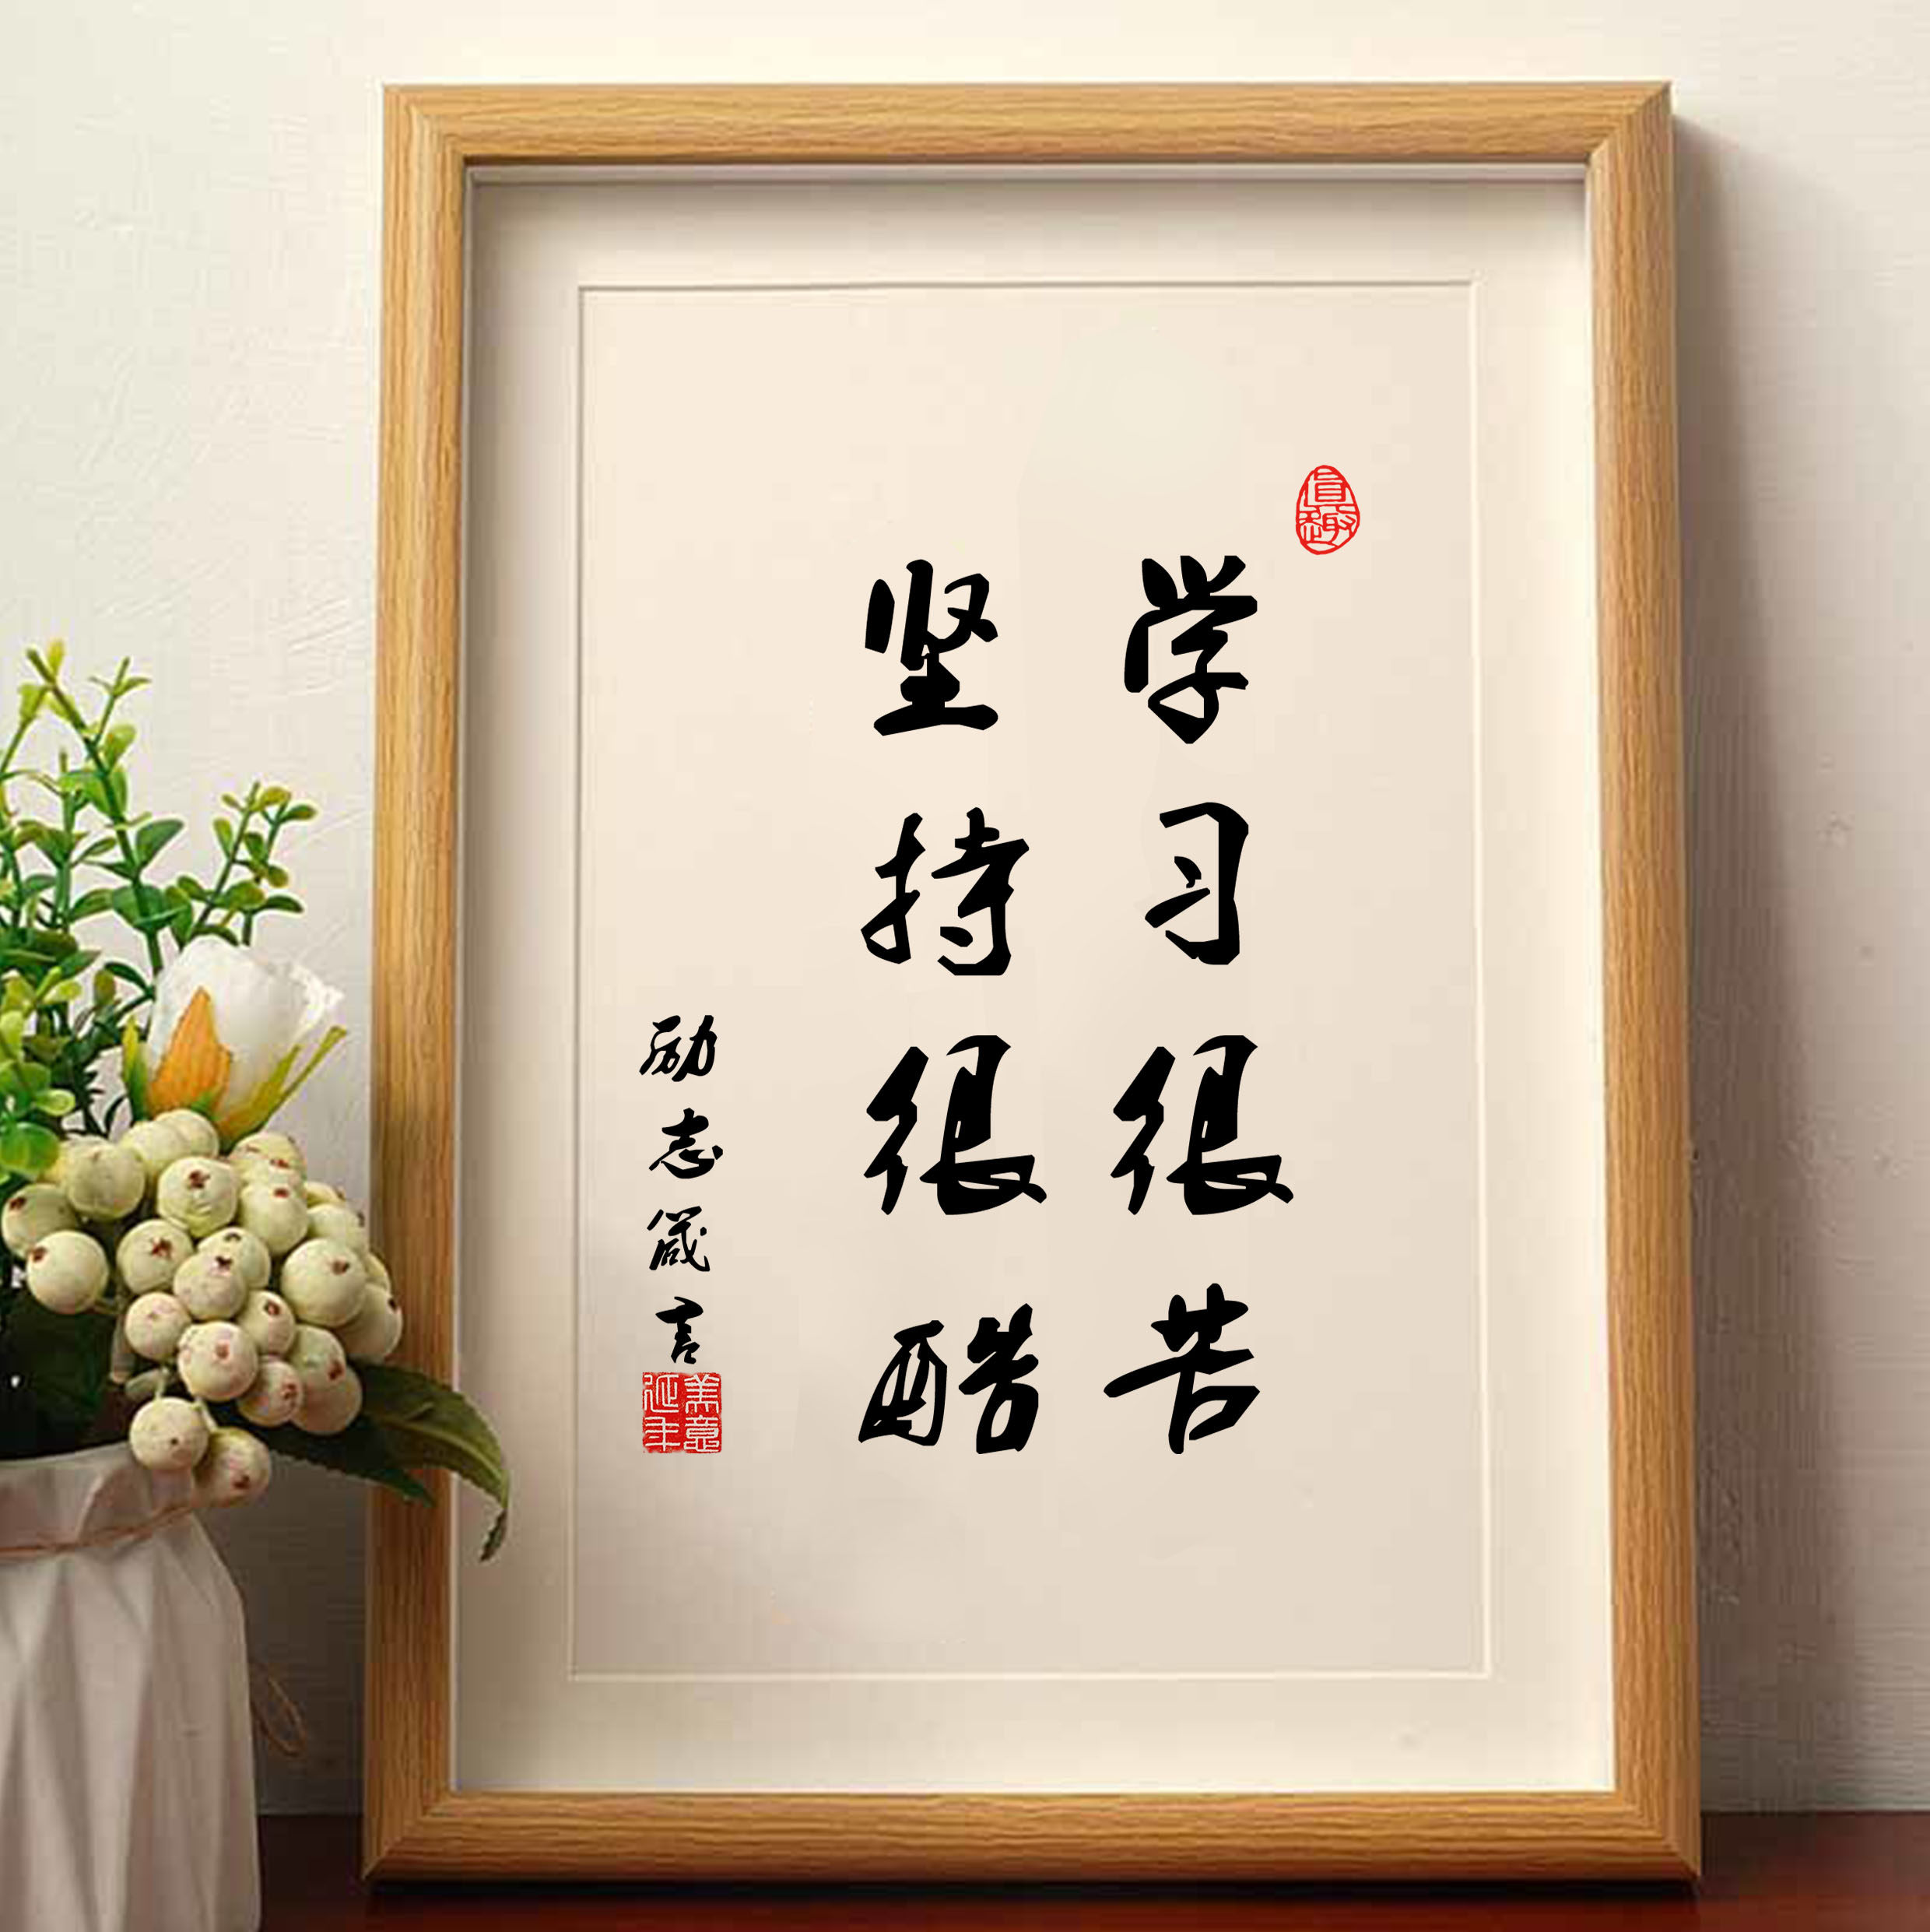 真趣
学习很苦
坚持很酷
励志箴言
美意延年